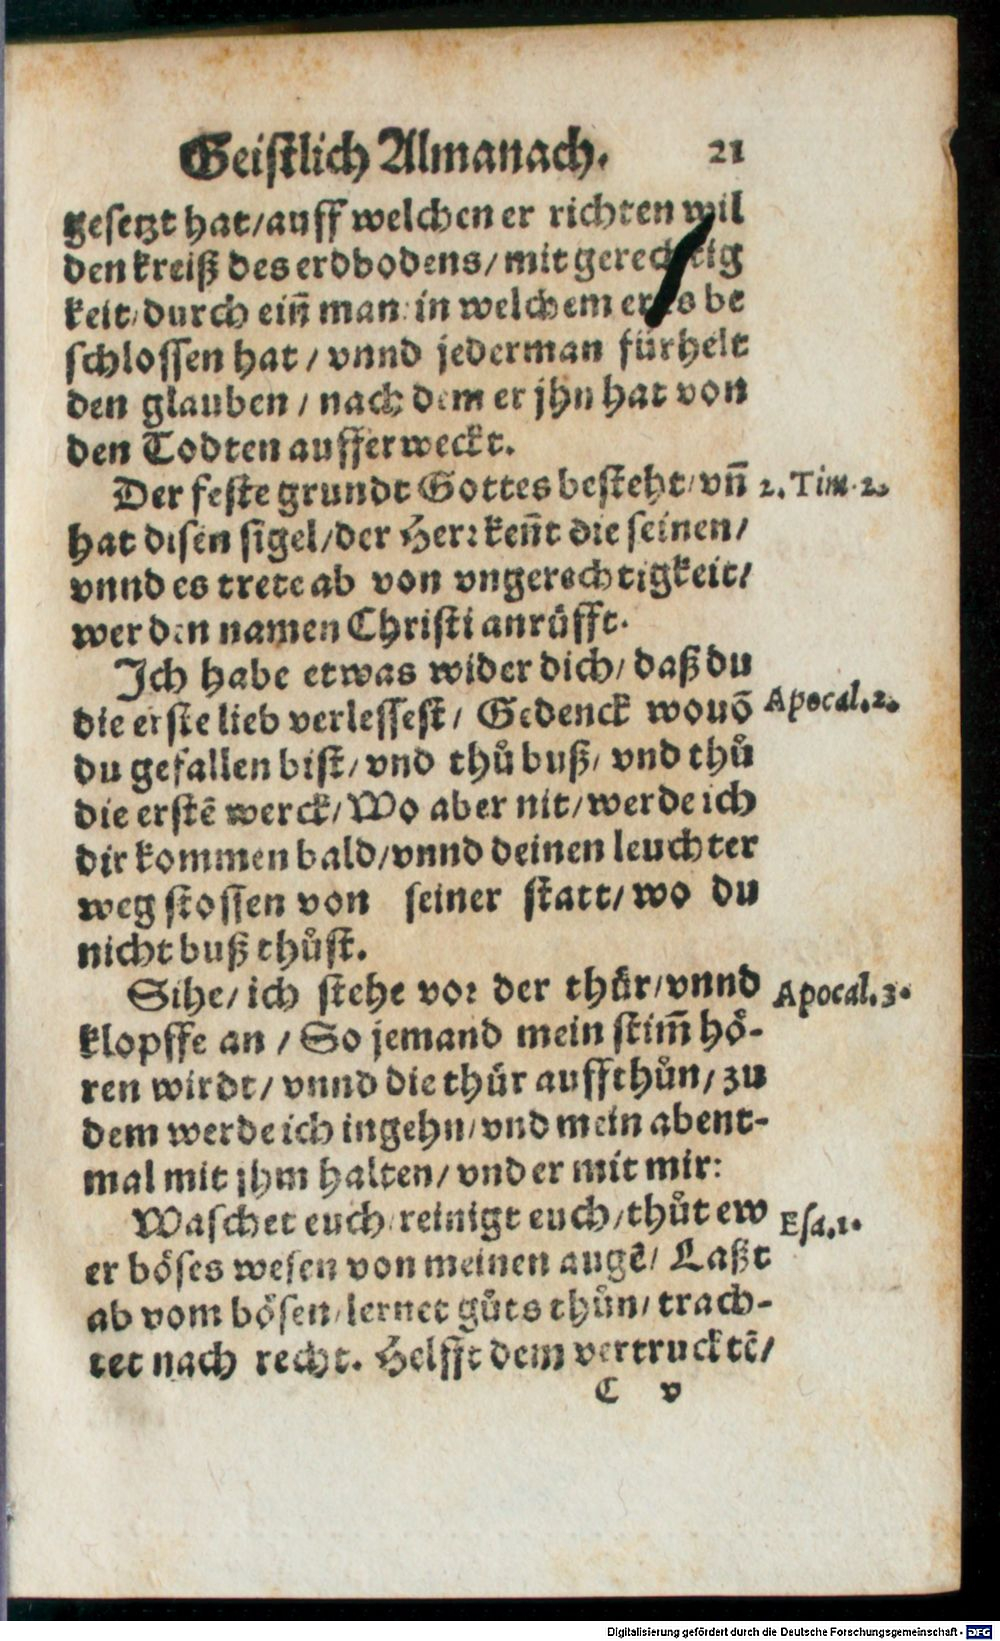 Geistlich Almanach. 21
gesetzt hat/auff welchen er richten wil
den kreiß des erdbodens/mit gerechtig
keit/durch eiñ man/in welchem er es be
schlossen hat/vnnd jederman fürhelt
den glauben/nach dem er jhn hat von
den Todten aufferweckt.
Der feste grundt Gottes besteht/vñ 2. Tim. 2.
hat disen sigel/der Herr keñt die seinen/
vnnd es trete ab von vngerechtigkeit/
wer den namen Christi anrüfft.
Ich habe etwas wider dich/daß du
die erste lieb verlessest/Gedenck wouõ Apocal. 2.
du gefallen bist/vnd thů buß/vnd thů
die erstẽ werck/Wo aber nit/werde ich
dir kommen bald/vnnd deinen leuchter
weg stossen von seiner statt/wo du
nicht buß thůst.
Sihe/ich stehe vor der thür/vnnd Apocal. 3.
klopffe an/So jemand mein stim̃ hö-
ren wirdt/vnnd die thür auffthůn/zu
dem werde ich ingehn/vnd mein abent-
mal mit jhm halten/vnd er mit mir:
Waschet euch/reinigt euch/thůt ew Esa. 1.
er böses wesen von meinen augẽ/Laßt
ab vom bösen/lernet gůts thůn/trach-
tet nach recht. Helfft dem vertrucktẽ/
C v
Digitalisierung gefördert durch die Deutsche Forschungsgemeinschaft - DFG